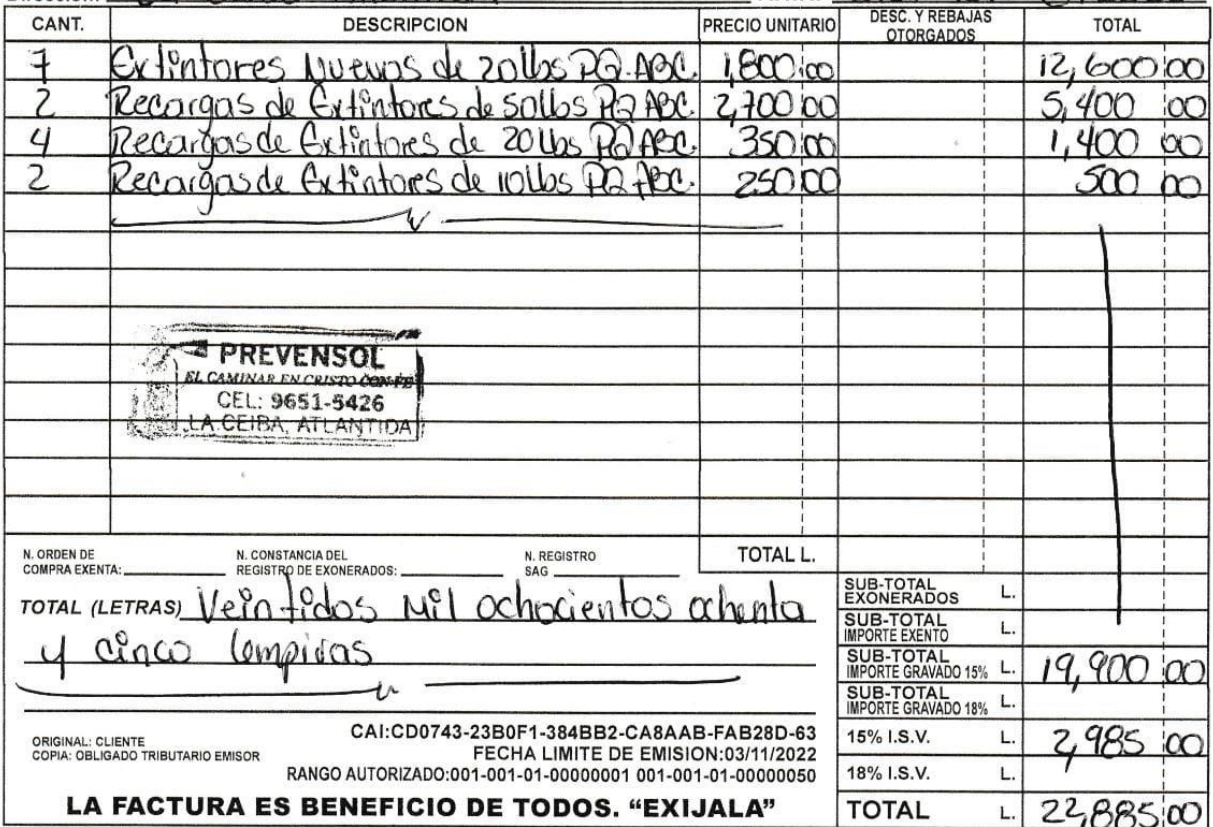 CANT. DESCRIPCION PRECIO UNITARIO DESC. Y REBAJAS OTORGADOS TOTAL
7 Extintores Nuevos de 20lbs PQ.ABC. 1,800.00 12,600 00
2 Recargas de Extintores de 50lbs PQ ABC. 2,700 00 5,400 00
4 Recargas de Extintores de 20lbs PQ ABC. 350 00 1,400 00
2 Recargas de Extintores de 10lbs PQ ABC. 250 00 500 00
PREVENSOL
EL CAMINAR EN CRISTO CON FE
CEL: 9651-5426
LA CEIBA, ATLANTIDA
N. ORDEN DE COMPRA EXENTA: N. CONSTANCIA DEL REGISTRO DE EXONERADOS: N. REGISTRO SAG TOTAL L.
TOTAL (LETRAS) Veintidos Mil ochocientos ochenta
y cinco lempiras
SUB-TOTAL EXONERADOS L.
SUB-TOTAL IMPORTE EXENTO L.
SUB-TOTAL IMPORTE GRAVADO 15% L. 19,900 00
SUB-TOTAL IMPORTE GRAVADO 18% L.
15% I.S.V. L. 2,985 00
18% I.S.V. L.
TOTAL L. 22,885 00
ORIGINAL: CLIENTE
COPIA: OBLIGADO TRIBUTARIO EMISOR
CAI:CD0743-23B0F1-384BB2-CA8AAB-FAB28D-63
FECHA LIMITE DE EMISION:03/11/2022
RANGO AUTORIZADO:001-001-01-00000001 001-001-01-00000050
LA FACTURA ES BENEFICIO DE TODOS. “EXIJALA”